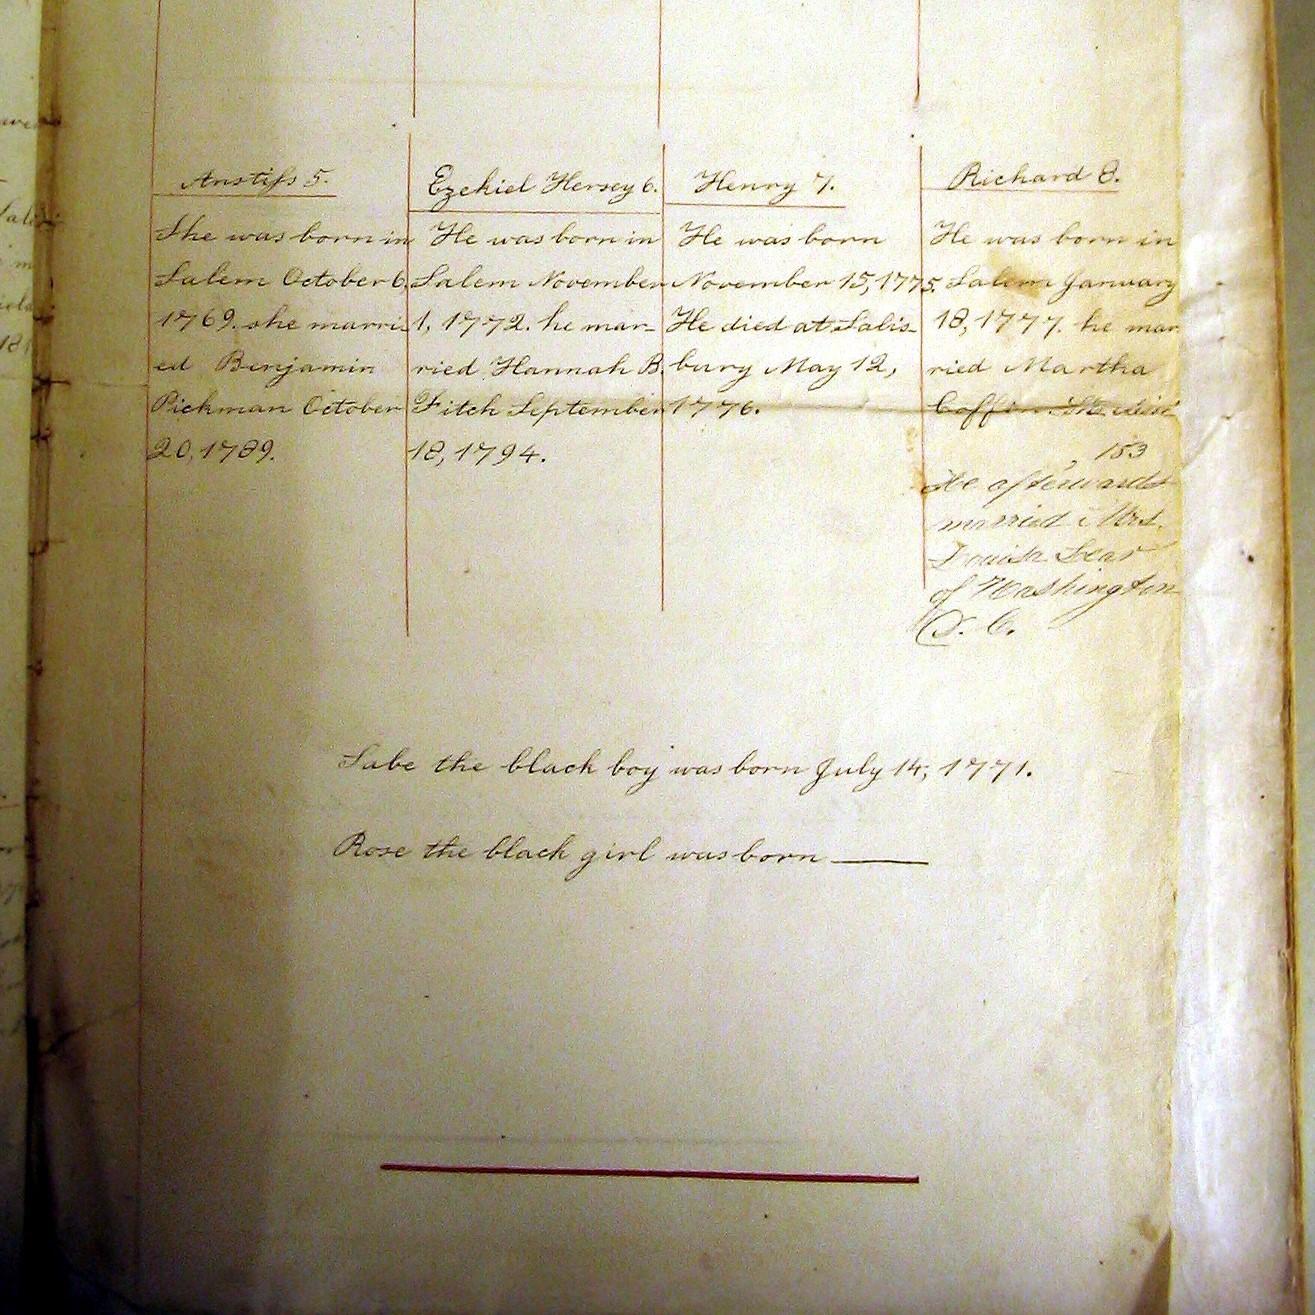 Anstiss 5.
She was born in
Salem October 6,
1769. she marri-
ed Benjamin
Pickman October
20, 1789.
Ezekiel Hersey 6.
He was born in
Salem November
1, 1772. he mar-
ried Hannah B.
Fitch September
18, 1794.
Henry 7.
He was born
November 15, 1775.
He died at Salis-
bury May 12,
1776.
Richard 8.
He was born in
Salem January
18, 1777. he mar
ried Martha
Coffin. She died
, 183
He afterwards
married Mrs.
Louisa Lear
of Washington
D. C.
Sabe the black boy was born July 14, 1771.
Rose the black girl was born ———